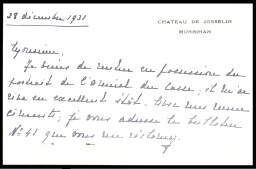 28 décembre 1931
CHATEAU DE JOSSELIN
MORBIHAN
Monsieur,
Je viens de rentrer en possession du
portrait de l'Amiral du Casse ; il m'arrive
en excellent état. Avec mes remer
ciements, je vous adresse le bulletin
N° 41 que vous me réclamez.